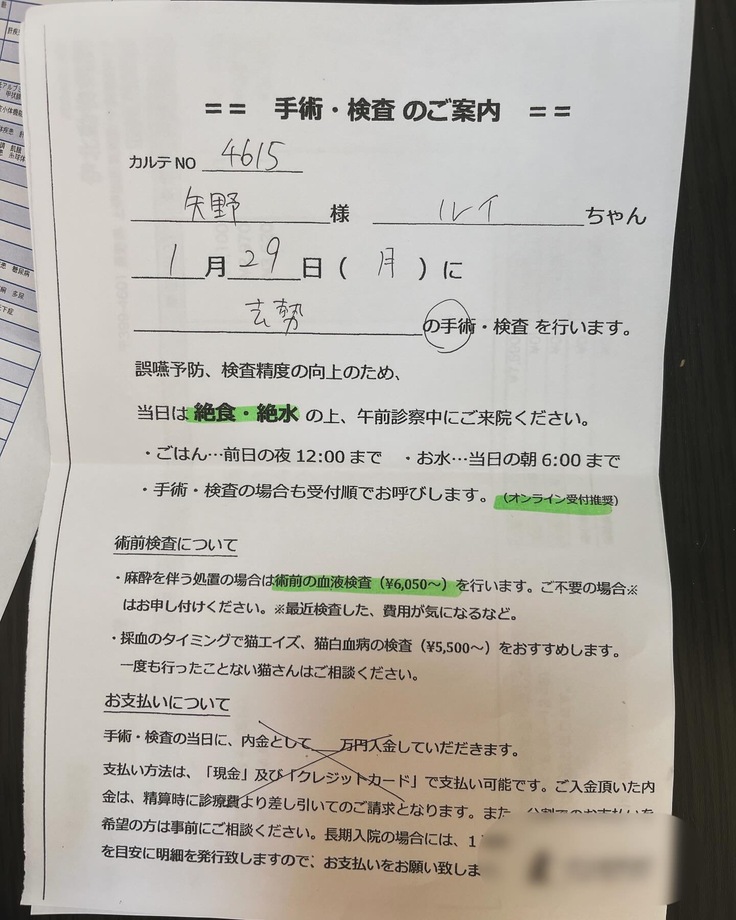 == 手術・検査 のご案内 ==
カルテNO 4615
矢野 様 ルイ ちゃん
1月29日(月)に
去勢 の手術・検査 を行います。
誤嚥予防、検査精度の向上のため、
当日は 絶食・絶水 の上、午前診察中にご来院ください。
・ごはん…前日の夜 12:00 まで ・お水…当日の朝 6:00 まで
・手術・検査の場合も受付順でお呼びします。(オンライン受付推奨)
術前検査について
・麻酔を伴う処置の場合は術前の血液検査(¥6,050～)を行います。ご不要の場合※
はお申し付けください。※最近検査した、費用が気になるなど。
・採血のタイミングで猫エイズ、猫白血病の検査(¥5,500～)をおすすめします。
一度も行ったことない猫さんはご相談ください。
お支払いについて
手術・検査の当日に、内金として 万円入金していただきます。
支払い方法は、「現金」及び「クレジットカード」で支払い可能です。ご入金頂いた内
金は、精算時に診療費より差し引いてのご請求となります。また、分割でのお支払いを
希望の方は事前にご相談ください。長期入院の場合には、1
を目安に明細を発行致しますので、お支払いをお願い致しま